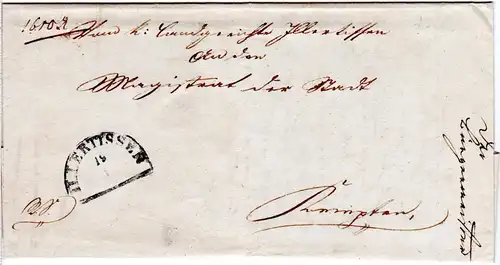 1610 R
Vom k: Landgerichte Illertissen
An den
Magistrat der Stadt
ILLERTISSEN
19
R.S.
Kempten.